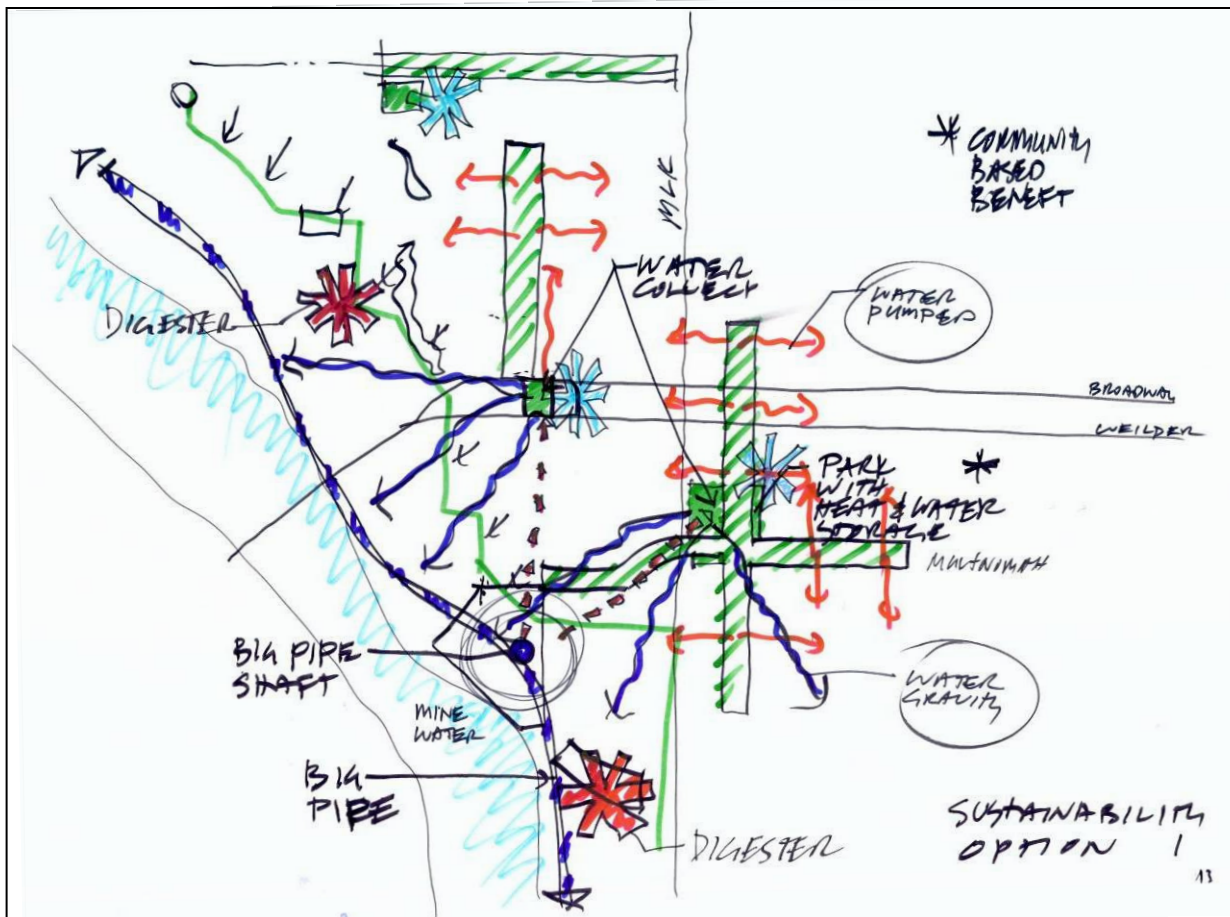 * COMMUNITY
BASED
BENEFT
MLK
WATER
COLLECT
WATER
PUMPED
DIGESTER
BROADWAY
WEILDER
PARK
WITH
HEAT & WATER
STORAGE
MULTNOMAH
BIG PIPE
SHAFT
MINE
WATER
WATER
GRAVITY
BIG
PIPE
DIGESTER
SUSTAINABILITY
OPTION 1
13